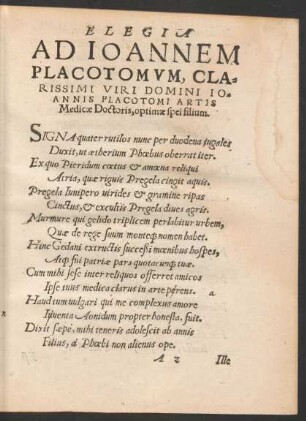 ELEGIA
AD IOANNEM
PLACOTOMVM, CLA-
RISSIMI VIRI DOMINI IO-
ANNIS PLACOTOMI ARTIS
Medicæ Doctoris, optimæ spei filium.
SIGNA quater rutilos nunc per duodena iugales
Duxit, ut ætherium Phœbus oberrat iter.
Ex quo Pieridum cœtus & amœna reliqui
Atria, quæ riguis Pregela cingit aquis.
Pregela Iunipero uirides & gramine ripas
Cinctus, & excultis Pregela diues agris.
Murmure qui gelido triplicem perlabitur urbem,
Quæ de rege suum monteq; nomen habet.
Hinc Gedani extructis successi mœnibus hospes,
Atq; fui patriæ pars quotacunq; tuæ.
Cum mihi sese inter reliquos offerret amicos
Ipse tuus medica clarus in arte parens. a
Haud tum uulgari qui me complexus amore
Iuuenta Aonidum propter honesta fuit.
Dixit sæpè, mihi teneris adolescit ab annis
Filius, à Phœbi non alienus ope.
A 2 Ille